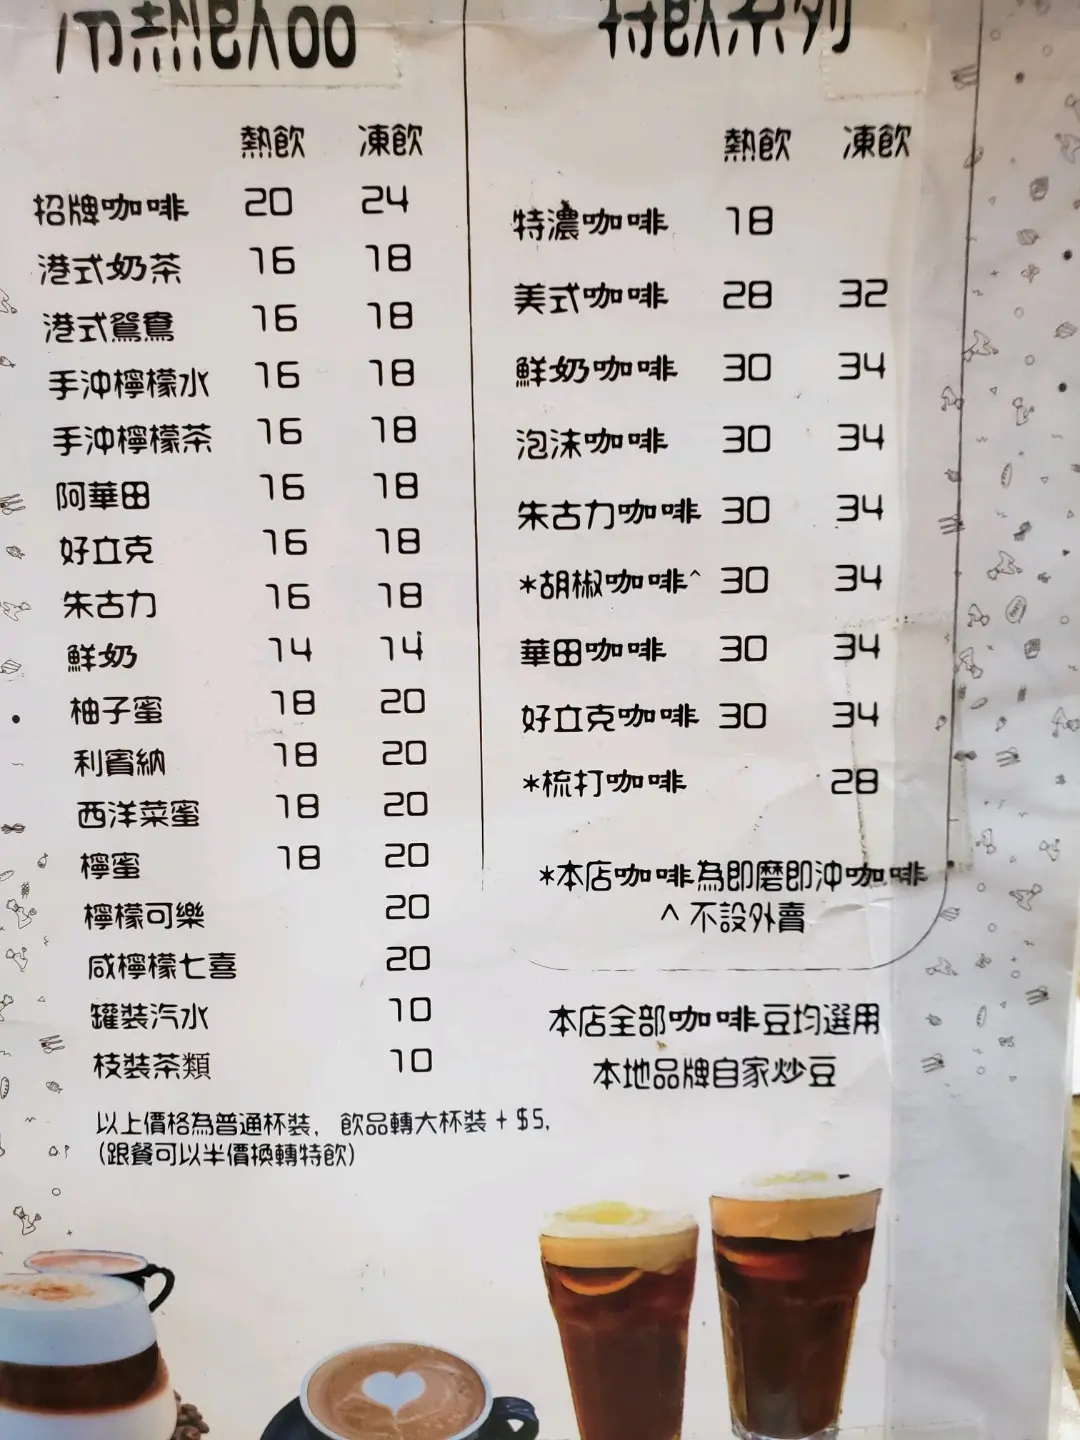 冷熱飲品
熱飲 凍飲
招牌咖啡 20 24
港式奶茶 16 18
港式鴛鴦 16 18
手沖檸檬水 16 18
手沖檸檬茶 16 18
阿華田 16 18
好立克 16 18
朱古力 16 18
鮮奶 14 14
柚子蜜 18 20
利賓納 18 20
西洋菜蜜 18 20
檸蜜 18 20
檸檬可樂 20
咸檸檬七喜 20
罐裝汽水 10
枝裝茶類 10
以上價格為普通杯裝, 飲品轉大杯裝 + $5,
(跟餐可以半價換轉特飲)
特飲系列
熱飲 凍飲
特濃咖啡 18
美式咖啡 28 32
鮮奶咖啡 30 34
泡沫咖啡 30 34
朱古力咖啡 30 34
*胡椒咖啡^ 30 34
華田咖啡 30 34
好立克咖啡 30 34
*梳打咖啡 28
*本店咖啡為即磨即沖咖啡
^ 不設外賣
本店全部咖啡豆均選用
本地品牌自家炒豆